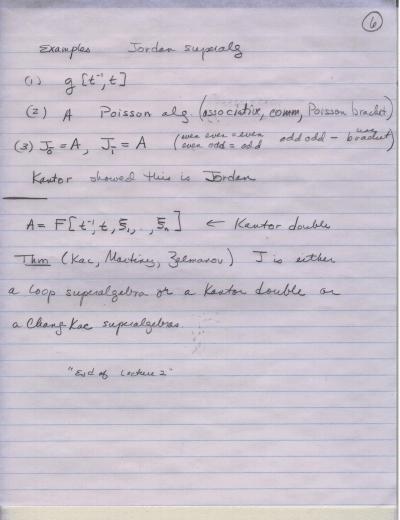 6
Examples Jordan superalg
(1) g[t⁻¹, t]
(2) A Poisson alg. (associative, comm, Poisson bracket)
(3) J₀̄ = A, J₁̄ = A (even even = even odd odd – use bracket)
even odd = odd
Kantor showed this is Jordan
A = F[t⁻¹, t, ξ₁, .., ξₙ] ← Kantor double
Thm (Kac, Martinez, Zelmanov) J is either
a loop superalgebra or a Kantor double or
a Cheng Kac superalgebras.
"End of Lecture 2"